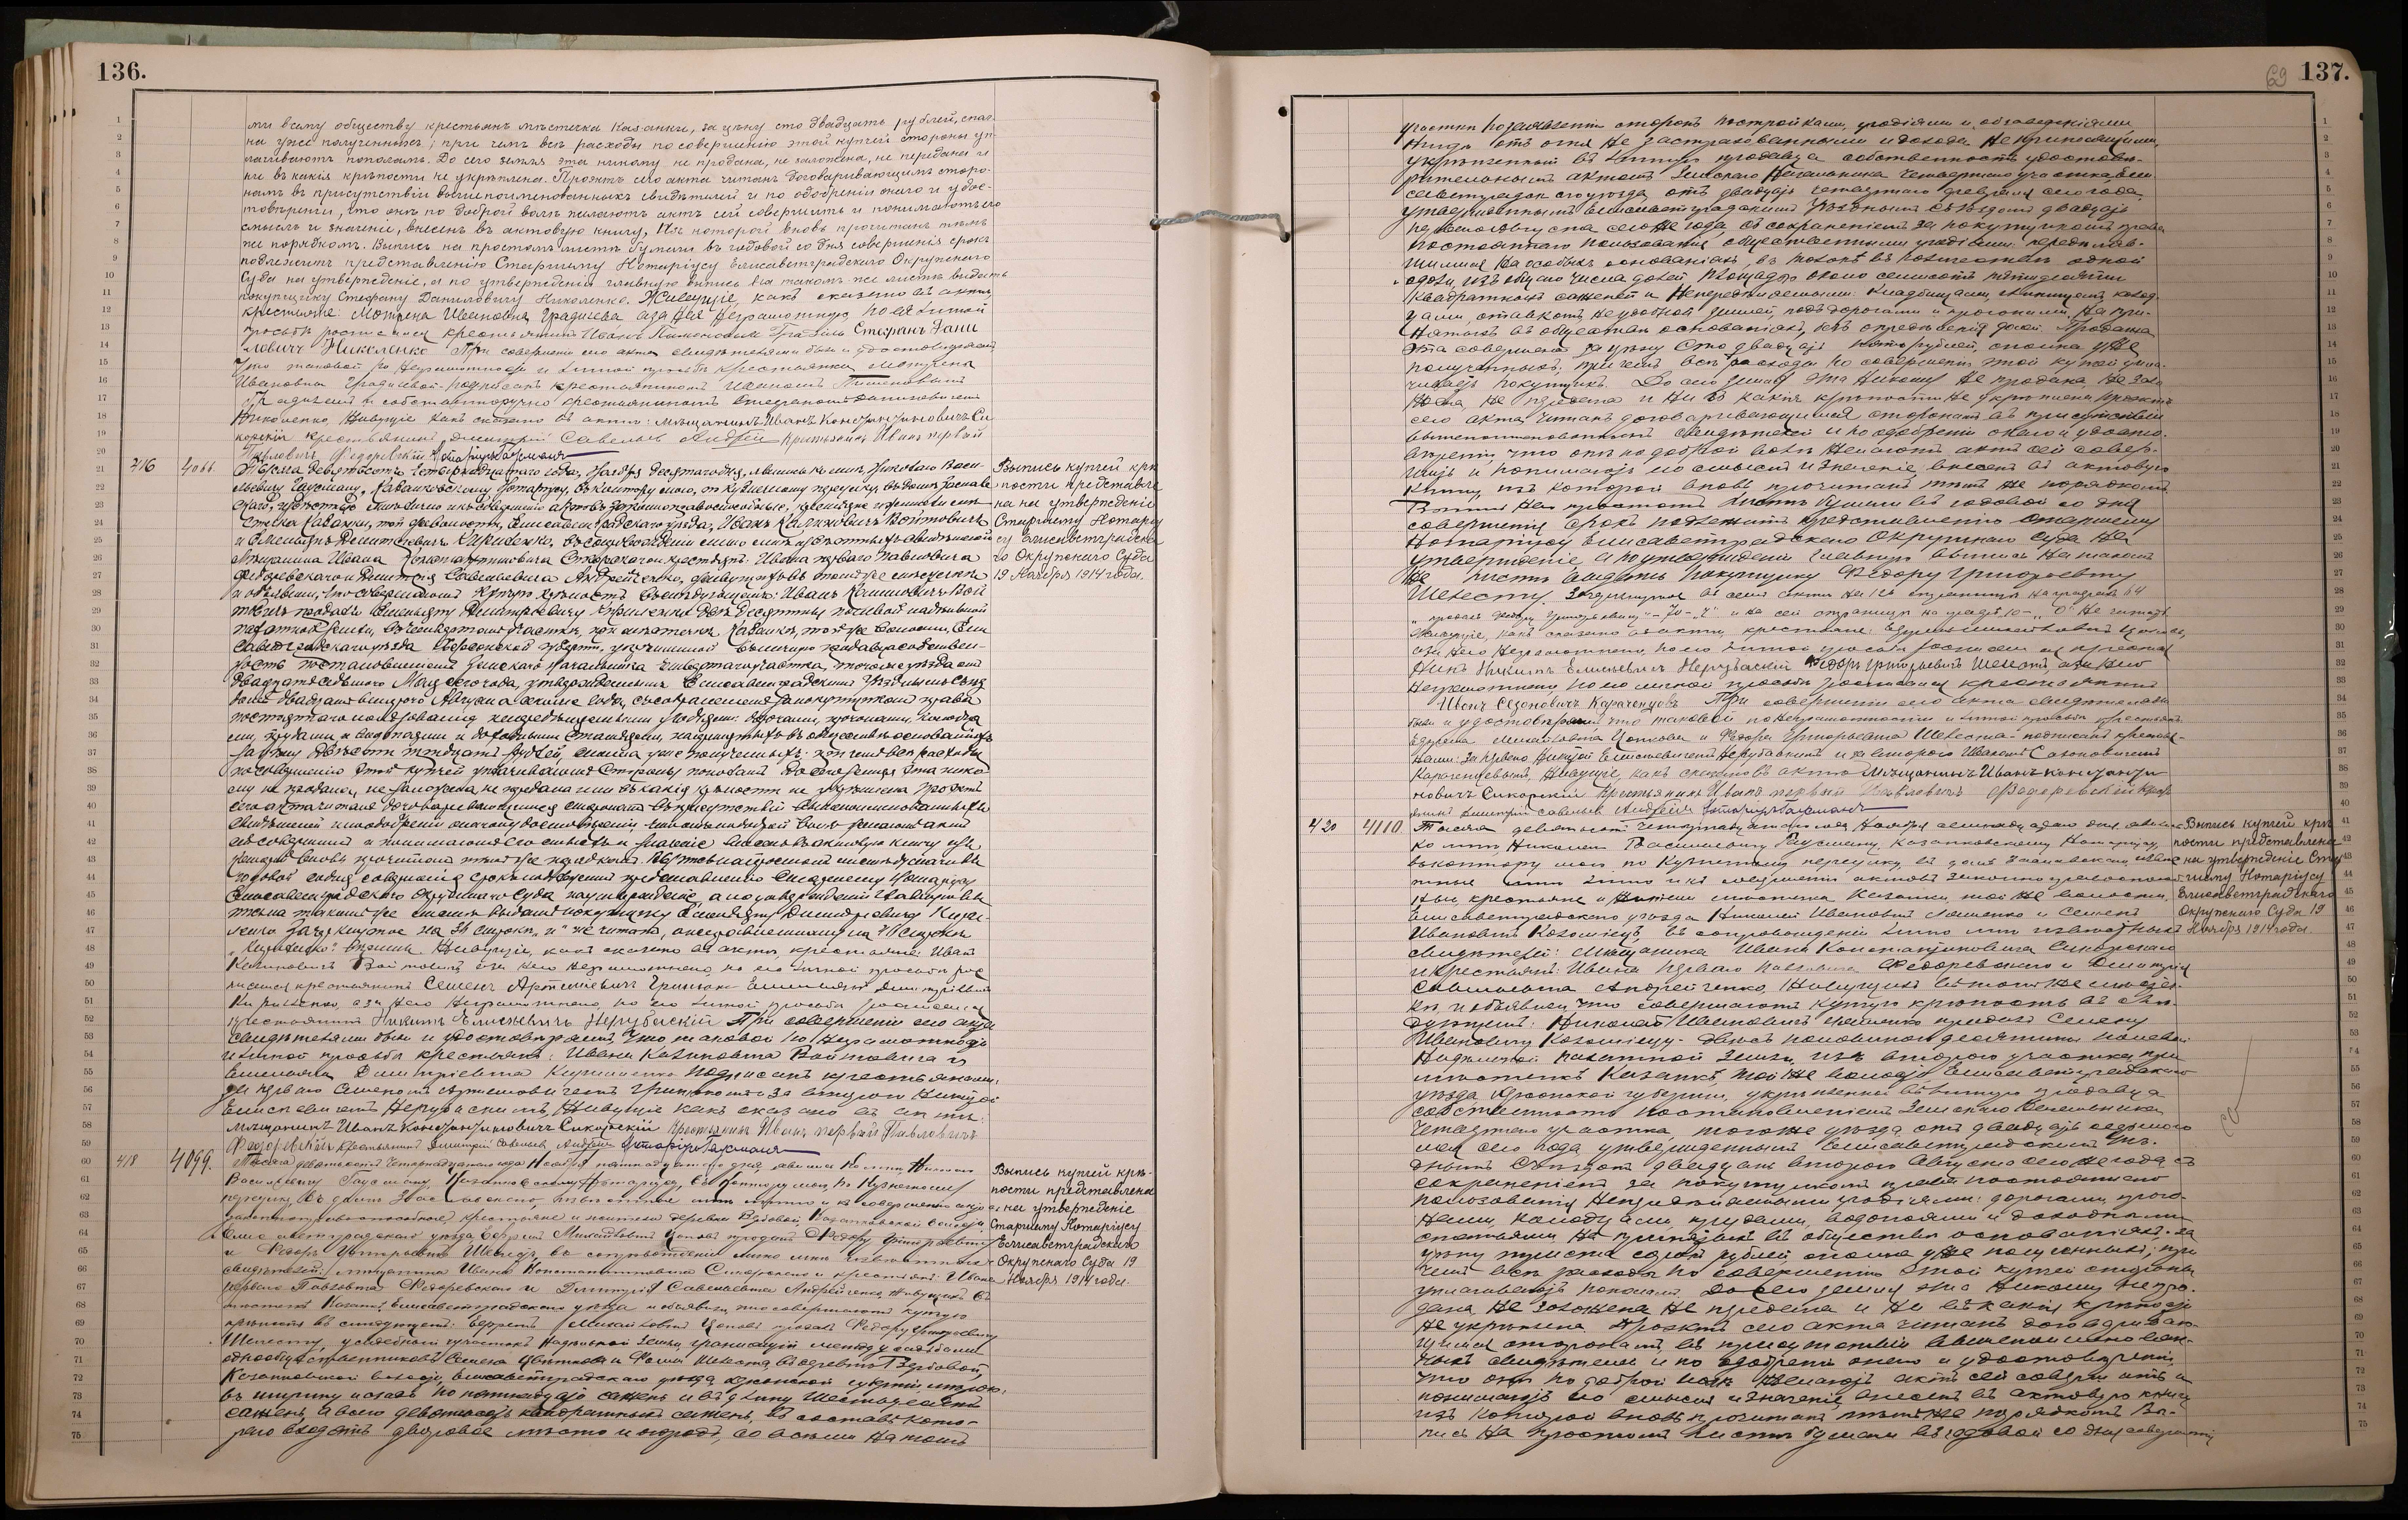 136.
ми всему обществу крестьянъ мѣстечка Казанки, за цѣну сто двадцать рублей, спол-
на уже полученныхъ; при чемъ всѣ расходы по совершенію этой купчей стороны уп-
лачиваютъ пополамъ. До сего земля эта никому не продана, не заложена, не передана и
ни въ какія крѣпости не укрѣплена. Проэктъ сего акта читанъ договаривающимся сторо-
намъ въ присутствіи вышепоименованныхъ свидѣтелей и по одобреніи онаго и удос-
товѣреніи, что онѣ по доброй волѣ желаютъ актъ сей совершить и понимаютъ его
смыслъ и значеніе, внесенъ въ актовую книгу, изъ которой вновь прочитанъ тѣмъ
же порядкомъ. Выпись на простомъ листѣ бумаги въ годовой со дня совершенія срокъ
подлежитъ представленію Старшему Нотаріусу Елисаветградскаго Окружнаго
Суда на утвержденіе, а по утвержденіи главную выпись на такомъ же листѣ выдать
покупщику Стефану Даниловичу Николенко. Живущіе, какъ сказано въ актѣ,
крестьяне: Мотрена Ивановна Градилева а за нее неграмотную по ея личной
просьбѣ росписался крестьянинъ Иванъ Пименовъ Стефанъ Дани
ловичъ Николенко При совершеніи сего акта свидѣтелями были и удостовѣряемъ
что таковой по неграмотности и личной просьбѣ крестьянки Мотрены
Ивановны Градилевой подписанъ крестьяниномъ Иваномъ Пименовымъ
и собственноручно крестьяниномъ Стефаномъ Даниловичемъ
Николенко, живущіе какъ сказано въ актѣ: мѣщанинъ Иванъ Константиновичъ Си
корскій крестьянинъ Дмитрій Савельевъ Андрей крестьянинъ Иванъ первый
Павловичъ Федоревскій Нотаріусъ Гаусманъ
416 4066.
Тысяча девятьсотъ четырнадцатаго года, Ноября десятаго дня, явились ко мнѣ, Николаю Васи-
льевичу Гаусману, Казанковскому Нотаріусу, въ контору мою, по Кузнечному переулку, въ домѣ Заслав
скаго,
стечка Казанки, той же волости, Елисаветградскаго уѣзда, Иванъ Калиновичъ Войтовичъ
и Емельянъ Дмитріевичъ Кириленко, въ сопровожденіи лично мнѣ извѣстныхъ свидѣтелей
мѣщанина Ивана Константиновича Сикорскаго и крестьянъ: Ивана перваго Павловича
Федоревскаго и Дмитрія Савельевича Андрейченко, живущихъ въ томъ же мѣстечкѣ
и объявили, что совершаютъ купчую крѣпость въ слѣдующемъ: Иванъ Калиновичъ Вой
товичъ продалъ Емельяну Дмитріевичу Кириленко двѣ десятины полевой надѣльной
пахатной земли, въ участкѣ, при мѣстечкѣ Казанкѣ, той же волости, Ели
саветградскаго уѣзда Херсонской губерніи, укрѣпленной въ личную продавца собствен-
ность постановленіемъ Земскаго Начальника четвертаго участка, того же уѣзда отъ
двадцать седьмого Мая сего года, утвержденнымъ Елисаветградскимъ Уѣзднымъ Съѣз
домъ двадцать второго Августа сего же года, съ сохраненіемъ за покупщикомъ права
постояннаго пользованія непередѣляемыми угодьями: дорогами, прогонами, колодца
ми, прудами и водопоями и доходными статьями, на принятыхъ въ обществѣ основаніяхъ
за цѣну двѣсти тридцать рублей, сполна уже полученныхъ; при чемъ всѣ расходы
по совершенію этой купчей уплачиваютъ стороны пополамъ. До сего земля эта нико
му не продана, не заложена, не передана и ни въ какія крѣпости не укрѣплена. Проэктъ
сего акта читанъ договаривающимся сторонамъ въ присутствіи вышепоименованныхъ
свидѣтелей и по одобреніи онаго и удостовѣреніи, что онѣ по доброй волѣ желаютъ актъ
сей совершить и понимаютъ его смыслъ и значеніе, внесенъ въ актовую книгу изъ
которой вновь прочитанъ тѣмъ же порядкомъ. Выпись на простомъ листѣ бумаги въ
годовой со дня совершенія срокъ подлежитъ представленію Старшему Нотаріусу
Елисаветградскаго Окружнаго Суда на утвержденіе, а по утвержденіи главную вы
пись на такомъ же листѣ выдать покупщику Емельяну Дмитріевичу Кири-
ленко. Зачеркнутое на 36 строкѣ „и“ не читать, а
„Кириленко“ Живущіе, какъ сказано въ актѣ, крестьяне: Иванъ
Калиновичъ Войтовичъ, а за него неграмотнаго, по его личной просьбѣ рос
писался крестьянинъ Семенъ Артемьевичъ Гринюкъ Емельянъ Дмитріевичъ
Кириленко, а за него неграмотнаго, по его личной просьбѣ росписался
крестьянинъ Никита Елисѣевичъ Нерубаскій При совершеніи сего акта
свидѣтелями были и удостовѣряемъ что таковой по неграмотности
и личной просьбѣ крестьянъ: Ивана Калиновича Войтовича и
Емельяна Дмитріевича Кириленко подписанъ крестьянами:
за перваго Семеномъ Артемовичемъ Гринюкомъ за второго Никитой
Елисѣевичемъ Нерубаскимъ, живущіе какъ сказано въ актѣ:
мѣщанинъ Иванъ Константиновичъ Сикорскій крестьянинъ Иванъ первый Павловичъ
Федоревскій крестьянинъ Дмитрій Савельевъ Андрей Нотаріусъ Гаусманъ
Выпись купчей крѣ
пости представле
на на утвержденіе
Старшему Нотаріу
су Елисаветградска
го Окружнаго Суда
19 Ноября 1914 года.
418 4099.
Тысяча девятьсотъ четырнадцатаго года Ноября пятнадцатаго дня, явились ко мнѣ, Николаю
Васильевичу Гаусману, Казанковскому Нотаріусу, въ контору мою, по Кузнечному
переулку, въ домѣ Заславскаго, извѣстные мнѣ лично и къ совершенію актовъ
законно правоспособные, крестьяне и жители деревни Вербовой Казанковской волости,
Елисаветградскаго уѣзда, Ефремъ Михайловичъ Цоповъ продалъ Федору Григорьевичу
и Федоръ Григорьевичъ Шелестъ, въ сопровожденіи лично мнѣ извѣстныхъ
свидѣтелей: мѣщанина Ивана Константиновича Сикорскаго и крестьянъ: Ивана
перваго Павловича Федоревскаго и Дмитрія Савельевича Андрейченко, живущихъ въ
мѣстечкѣ Казанкѣ, Елисаветградскаго уѣзда и объявили, что совершаютъ купчую
крѣпость въ слѣдующемъ: Ефремъ Михайловичъ Цоповъ продалъ Федору Григорьевичу
Шелесту, усадебный участокъ надѣльной земли, граничащій между усадьбами
однообщественниковъ Семена Цвѣткова и Фомы Шелеста, въ деревнѣ Вербовой,
Казанковской волости, Елисаветградскаго уѣзда, Херсонской губерніи, мѣрою:
въ ширину и сзади по пятнадцать сажень и въ длину шестьдесятъ
сажень, а всего девятьсотъ квадратныхъ сажень, въ составъ кото-
раго входятъ дворовое мѣсто и огородъ, со всѣми на томъ
Выпись купчей крѣ-
пости представлена
на утвержденіе
Старшему Нотаріусу
Елисаветградскаго
Окружнаго Суда 19
Ноября 1914 года.
69 137.
участкѣ по заявленію сторонъ постройками, угодіями и обзаведеніями,
нигдѣ отъ огня не застрахованными и дохода не приносящими,
укрѣпленный въ личную продавца собственность удостовѣ-
рительнымъ актомъ Земскаго Начальника четвертаго участка, Ели
саветградскаго уѣзда, отъ двадцать четвертаго февраля сего года,
утвержденнымъ Елисаветградскимъ Уѣзднымъ Съѣздомъ двадцать
перваго Августа сего же года, съ сохраненіемъ за покупщикомъ права
постояннаго пользованія общественными угодіями:
на особыхъ основаніяхъ, въ количествѣ одной
изъ общаго числа долей, площадью около семисотъ пятидесяти
квадратныхъ сажень и непередѣляемыми: кладбищами,
подъ дорогами и прогонами, на при-
нятыхъ въ обществѣ основаніяхъ, безъ опредѣленія доли. Продажа
эта совершена за цѣну сто двадцать пять рублей, сполна уже
полученныхъ, при чемъ всѣ расходы по совершенію этой купчей упла-
чиваетъ покупщикъ. До сего земля эта никому не продана, не зало
жена, не передана и ни въ какія крѣпости не укрѣплена. Проэктъ
сего акта читанъ договаривающимся сторонамъ въ присутствіи
вышепоименованныхъ свидѣтелей и по одобреніи онаго и удосто-
вѣреніи, что онѣ по доброй волѣ желаютъ актъ сей совер-
шить и понимаютъ его смыслъ и значеніе, внесенъ въ актовую
книгу, изъ которой вновь прочитанъ тѣмъ же порядкомъ.
Выпись на простомъ листѣ бумаги въ годовой со дня
совершенія срокъ подлежитъ представленію Старшему
Нотаріусу Елисаветградскаго Окружнаго Суда на
утвержденіе, а по утвержденіи главную выпись на такомъ
же листѣ выдать покупщику Федору Григорьевичу
Шелесту. Зачеркнутое въ семъ актѣ на 136 страницѣ на строкѣ 64
„продалъ Федору Григорьевичу“ и на сей страницѣ на строкѣ 10 не читать
Живущіе, какъ сказано въ актѣ, крестьяне: Ефремъ Михайловичъ Цоповъ,
а за него неграмотнаго, по его личной просьбѣ росписался крестья
нинъ Никита Елисѣевичъ Нерубаскій Федоръ Григорьевичъ Шелестъ а за него
неграмотнаго, по его личной просьбѣ росписался крестьянинъ
Иванъ Сазоновичъ Караченцевъ При совершеніи сего акта свидѣтелями
были и удостовѣряемъ что таковой по неграмотности и личной просьбѣ крестьянъ
Ефрема Михайловича Цопова и Федора Григорьевича Шелеста подписанъ крестья-
нами: за перваго Никитой Елисѣевичемъ Нерубаскимъ и за второго Иваномъ Сазоновичемъ
Караченцевымъ, живущіе, какъ сказано въ актѣ мѣщанинъ Иванъ Константи
новичъ Сикорскій крестьянинъ Иванъ первый Павловичъ Федоревскій крест
янинъ Дмитрій Савельевъ Андрей Нотаріусъ Гаусманъ
420 4110
Тысяча девятьсотъ четырнадцатаго года Ноября семнадцатаго дня, явились
ко мнѣ Николаю Васильевичу Гаусману, Казанковскому Нотаріусу,
въ контору мою по Кузнечному переулку, въ домѣ Заславскаго, извѣст
ные мнѣ лично и къ совершенію актовъ законно правоспособ
ные, крестьяне и жители мѣстечка Казанки, той же волости,
Елисаветградскаго уѣзда Николай Ивановичъ Ляшенко и Семенъ
Ивановичъ Козолиецъ, въ сопровожденіи лично мнѣ извѣстныхъ
свидѣтелей: мѣщанина Ивана Константиновича Сикорскаго
и крестьянъ: Ивана перваго Павловича Федоревскаго и Дмитрія
Савельевича Андрейченко, живущихъ въ томъ же мѣстеч-
кѣ и объявили, что совершаютъ купчую крѣпость въ слѣ-
дующемъ: Николай Ивановичъ Ляшенко продалъ Семену
Ивановичу двѣ съ половиною десятины полевой
надѣльной пахатной земли, изъ второго участка, при
мѣстечкѣ Казанкѣ, той же волости Елисаветградскаго
уѣзда Херсонской губерніи, укрѣпленной въ личную продавца
собственность постановленіемъ Земскаго Начальника
четвертаго участка, того же уѣзда отъ двадцать седьмого
мая сего года, утвержденнымъ Елисаветградскимъ Уѣз-
днымъ Съѣздомъ двадцать второго Августа сего же года съ
сохраненіемъ за покупщикомъ права постояннаго
пользованія непередѣляемыми угодіями: дорогами, прого-
нами, колодцами, прудами, водопоями и доходными
статьями на принятыхъ въ обществѣ основаніяхъ за
цѣну триста рублей сполна уже полученныхъ; при
чемъ всѣ расходы по совершенію этой купчей стороны
уплачиваютъ пополамъ. До сего земля эта никому не про-
дана, не заложена, не передана и ни въ какія крѣпости
не укрѣплена. Проэктъ сего акта читанъ договариваю-
щимся сторонамъ въ присутствіи вышепоименован-
ныхъ свидѣтелей и по одобреніи онаго и удостовѣреніи
что онѣ по доброй волѣ желаютъ актъ сей совершить и
понимаютъ его смыслъ и значеніе, внесенъ въ актовую книгу
изъ которой вновь прочитанъ тѣмъ же порядкомъ. Вы-
пись на простомъ листѣ бумаги въ годовой со дня совершенія
Выпись купчей крѣ
пости представлена
на утвержденіе Ста
ршему Нотаріусу
Елисаветградскаго
Окружнаго Суда 19
Ноября 1914 года.